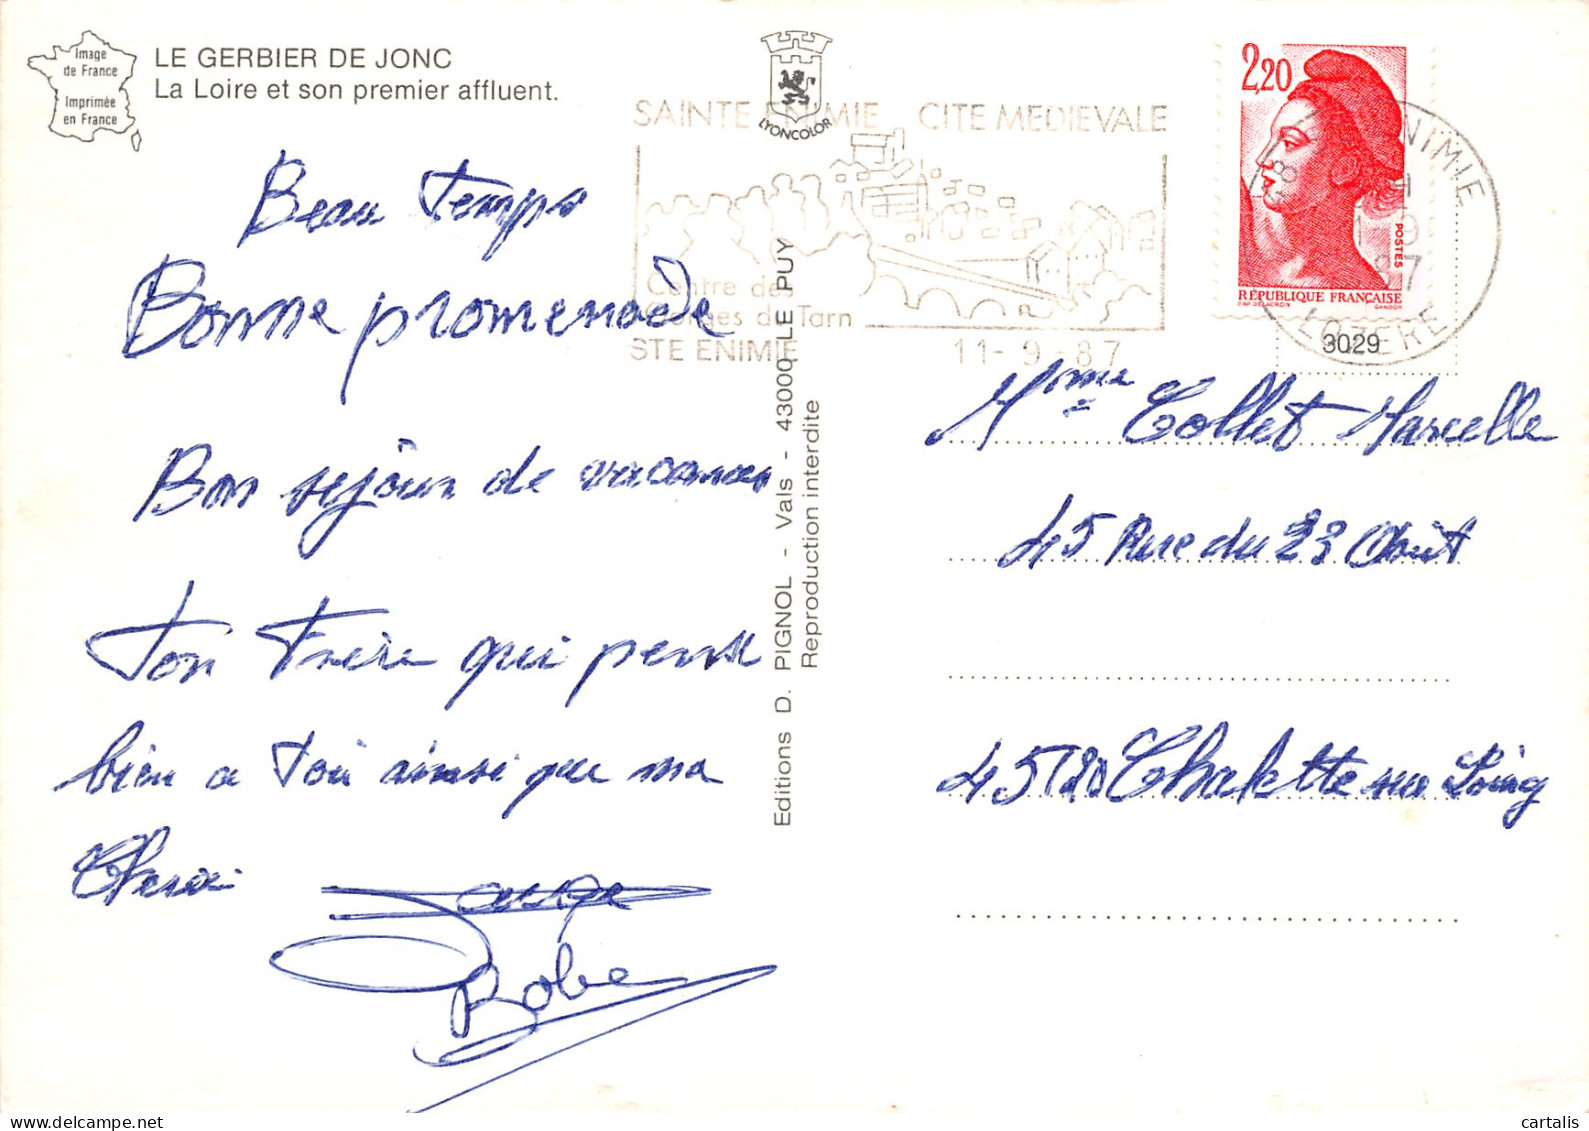 Image
de France
Imprimée
en France
LE GERBIER DE JONC
La Loire et son premier affluent.
LYONCOLOR
SAINTE ENIMIE CITE MEDIEVALE
Centre des
Gorges du Tarn
STE ENIMIE 11-9-87
2,20
POSTES
RÉPUBLIQUE FRANÇAISE
D'AP. DELACROIX GANDON
ENIMIE
LOZERE
3029
Beau Temps
Bonne promenade
Bon sejour de vacances
Ton Frère qui pense
bien a Toi ainsi que ma
Bobe
Editions D. PIGNOL - Vals - 43000 LE PUY
Reproduction interdite
Mme Collet Marcelle
45 Rue du 23 Août
45120 Chalette sur Loing
cartalis